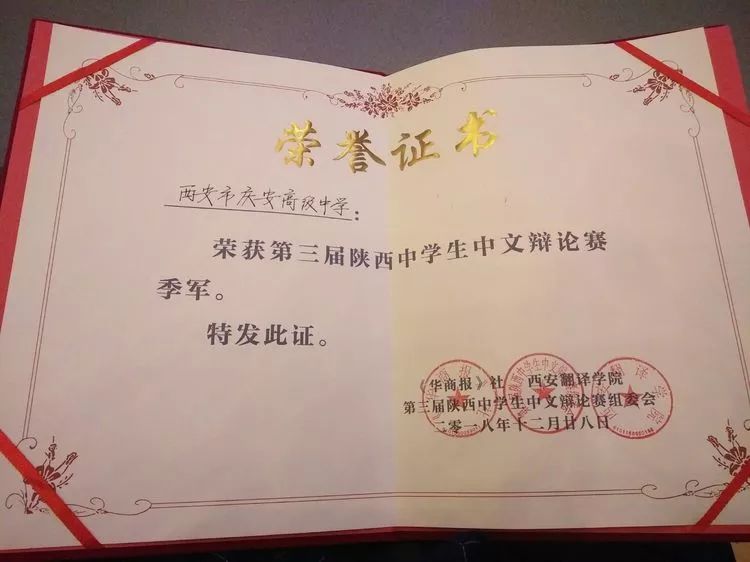 荣誉证书
西安市庆安高级中学：
荣获第三届陕西中学生中文辩论赛
季军。
特发此证。
《华商报》社 西安翻译学院
第三届陕西中学生中文辩论赛组委会
二零一八年十二月廿八日